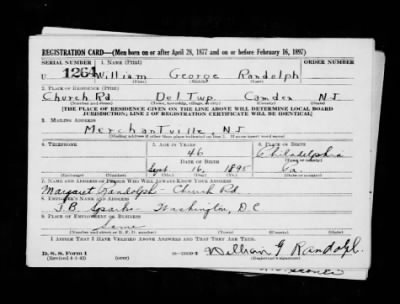 REGISTRATION CARD—(Men born on or after April 28, 1877 and on or before February 16, 1897)
SERIAL NUMBER 1. NAME (Print) ORDER NUMBER
U 1264 William George Randolph
2. PLACE OF RESIDENCE (Print)
Church Rd Del Twp. Camden NJ
(Number and street) (Town, township, village, or city) (County) (State)
[THE PLACE OF RESIDENCE GIVEN ON THE LINE ABOVE WILL DETERMINE LOCAL BOARD
JURISDICTION; LINE 2 OF REGISTRATION CERTIFICATE WILL BE IDENTICAL]
3. MAILING ADDRESS
Merchantville, NJ
4. TELEPHONE 5. AGE IN YEARS 6. PLACE OF BIRTH
46 Philadelphia
DATE OF BIRTH (Town or county)
Sept. 16, 1895 Pa.
(Exchange) (Number) (Mo.) (Day) (Yr.) (State or country)
7. NAME AND ADDRESS OF PERSON WHO WILL ALWAYS KNOW YOUR ADDRESS
Margaret Randolph — Church Rd.
8. EMPLOYER'S NAME AND ADDRESS
Washington, D.C
9. PLACE OF EMPLOYMENT OR BUSINESS
Same
(Number and street or R. F. D. number) (Town) (County) (State)
I AFFIRM THAT I HAVE VERIFIED ABOVE ANSWERS AND THAT THEY ARE TRUE.
D. S. S. Form 1 William G Randolph
(Registrant's signature)